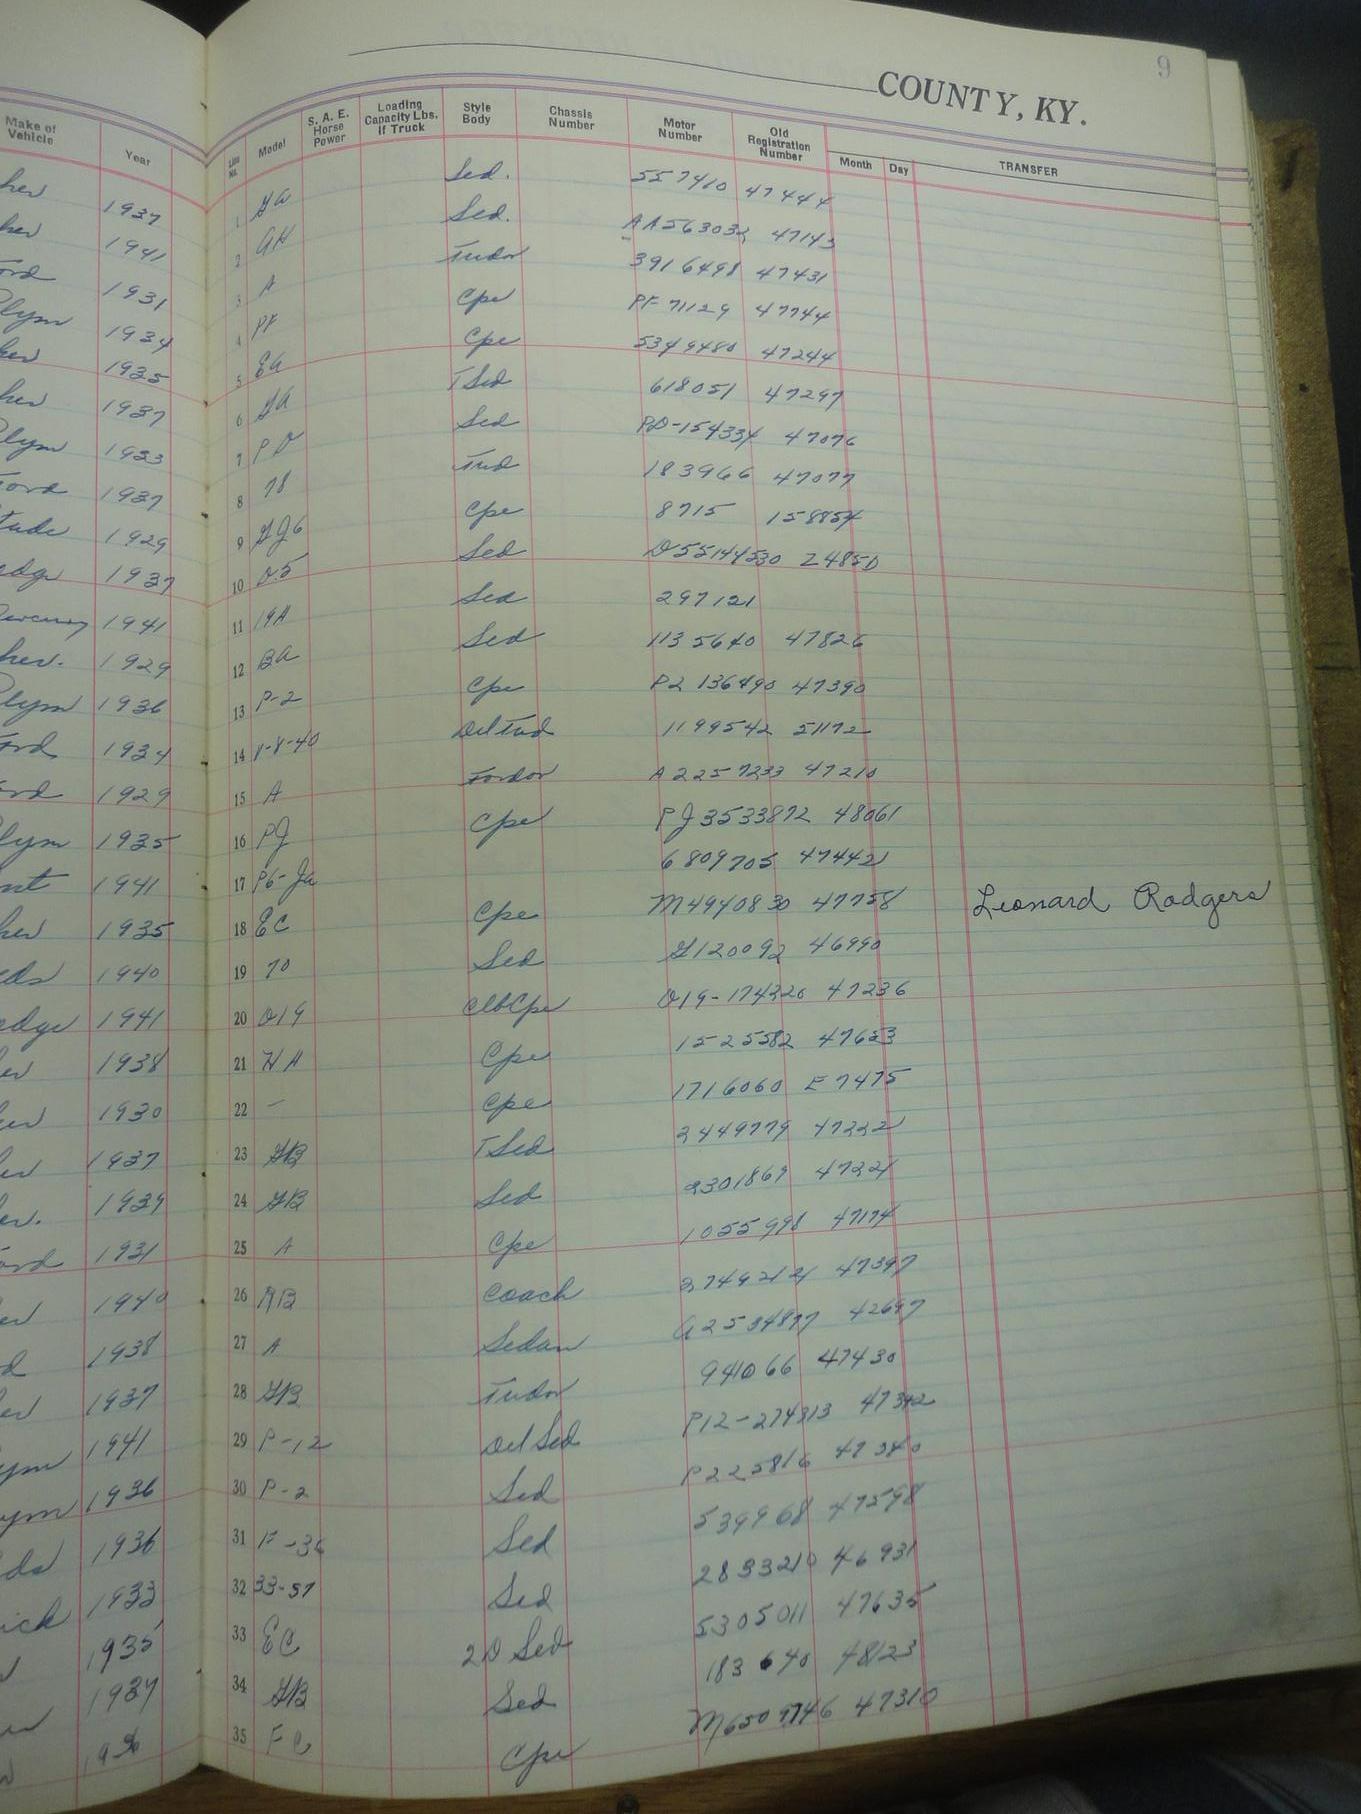 9
COUNTY, KY.
Make of Vehicle Year Line No. Model S. A. E. Horse Power Loading Capacity Lbs. If Truck Style Body Chassis Number Motor Number Old Registration Number Month Day TRANSFER
1937 1 GA Sed. 557410 47444
1941 2 AH Sed. AA563032 47143
1931 3 A Tudor 3916498 47431
1934 4 PF Cpe PF 71129 47744
1935 5 EA Cpe 5349480 47244
1937 6 GA TSed 618051 47297
1933 7 PD Sed PD-154334 47076
1937 8 78 Tud 183966 47077
1929 9 GJ6 Cpe 8715 158854
1937 10 D5 Sed D55144530 24850
1941 11 19A Sed 297121
1929 12 BA Sed 1135640 47826
1936 13 P-2 Cpe P2 136490 47390
1934 14 Del Tud 1199542 51172
1929 15 A Fordor A2257233 47210
1935 16 PJ Cpe PJ3533872 48061
1941 17 P6-JA 6809705 47442
1935 18 EC Cpe M4940830 47758 Leonard Rodgers
1940 19 70 Sed G120092 46990
1941 20 D19 ClbCpe D19-174320 47236
1938 21 HA Cpe 1525582 47653
1930 22 - Cpe 1716060 E7475
1937 23 GB TSed 2449779 47222
1939 24 GB Sed 2301869 47221
1931 25 A Cpe 1055998 47174
1940 26 Coach 47397
1938 27 A Sedan 42697
1937 28 GB Tudor 941066 47430
1941 29 P-12 Del Sed P12-274313 47342
1936 30 P-2 Sed P225816 47340
1936 31 F-36 Sed 539968 47598
1933 32 33-57 Sed 2833210 46931
1935 33 EC 2D Sed 5305011 47635
1937 34 GB Sed 183640 48123
35 FC Cpe M6509746 47310